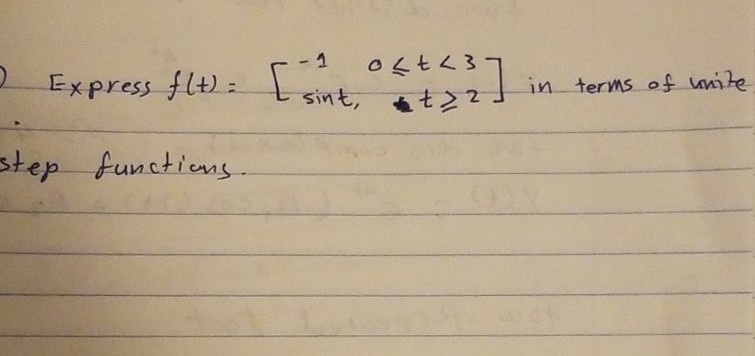 ) Express f(t) = [ -1 0 ≤ t < 3
sint, t ≥ 2 ] in terms of unite
step functions.